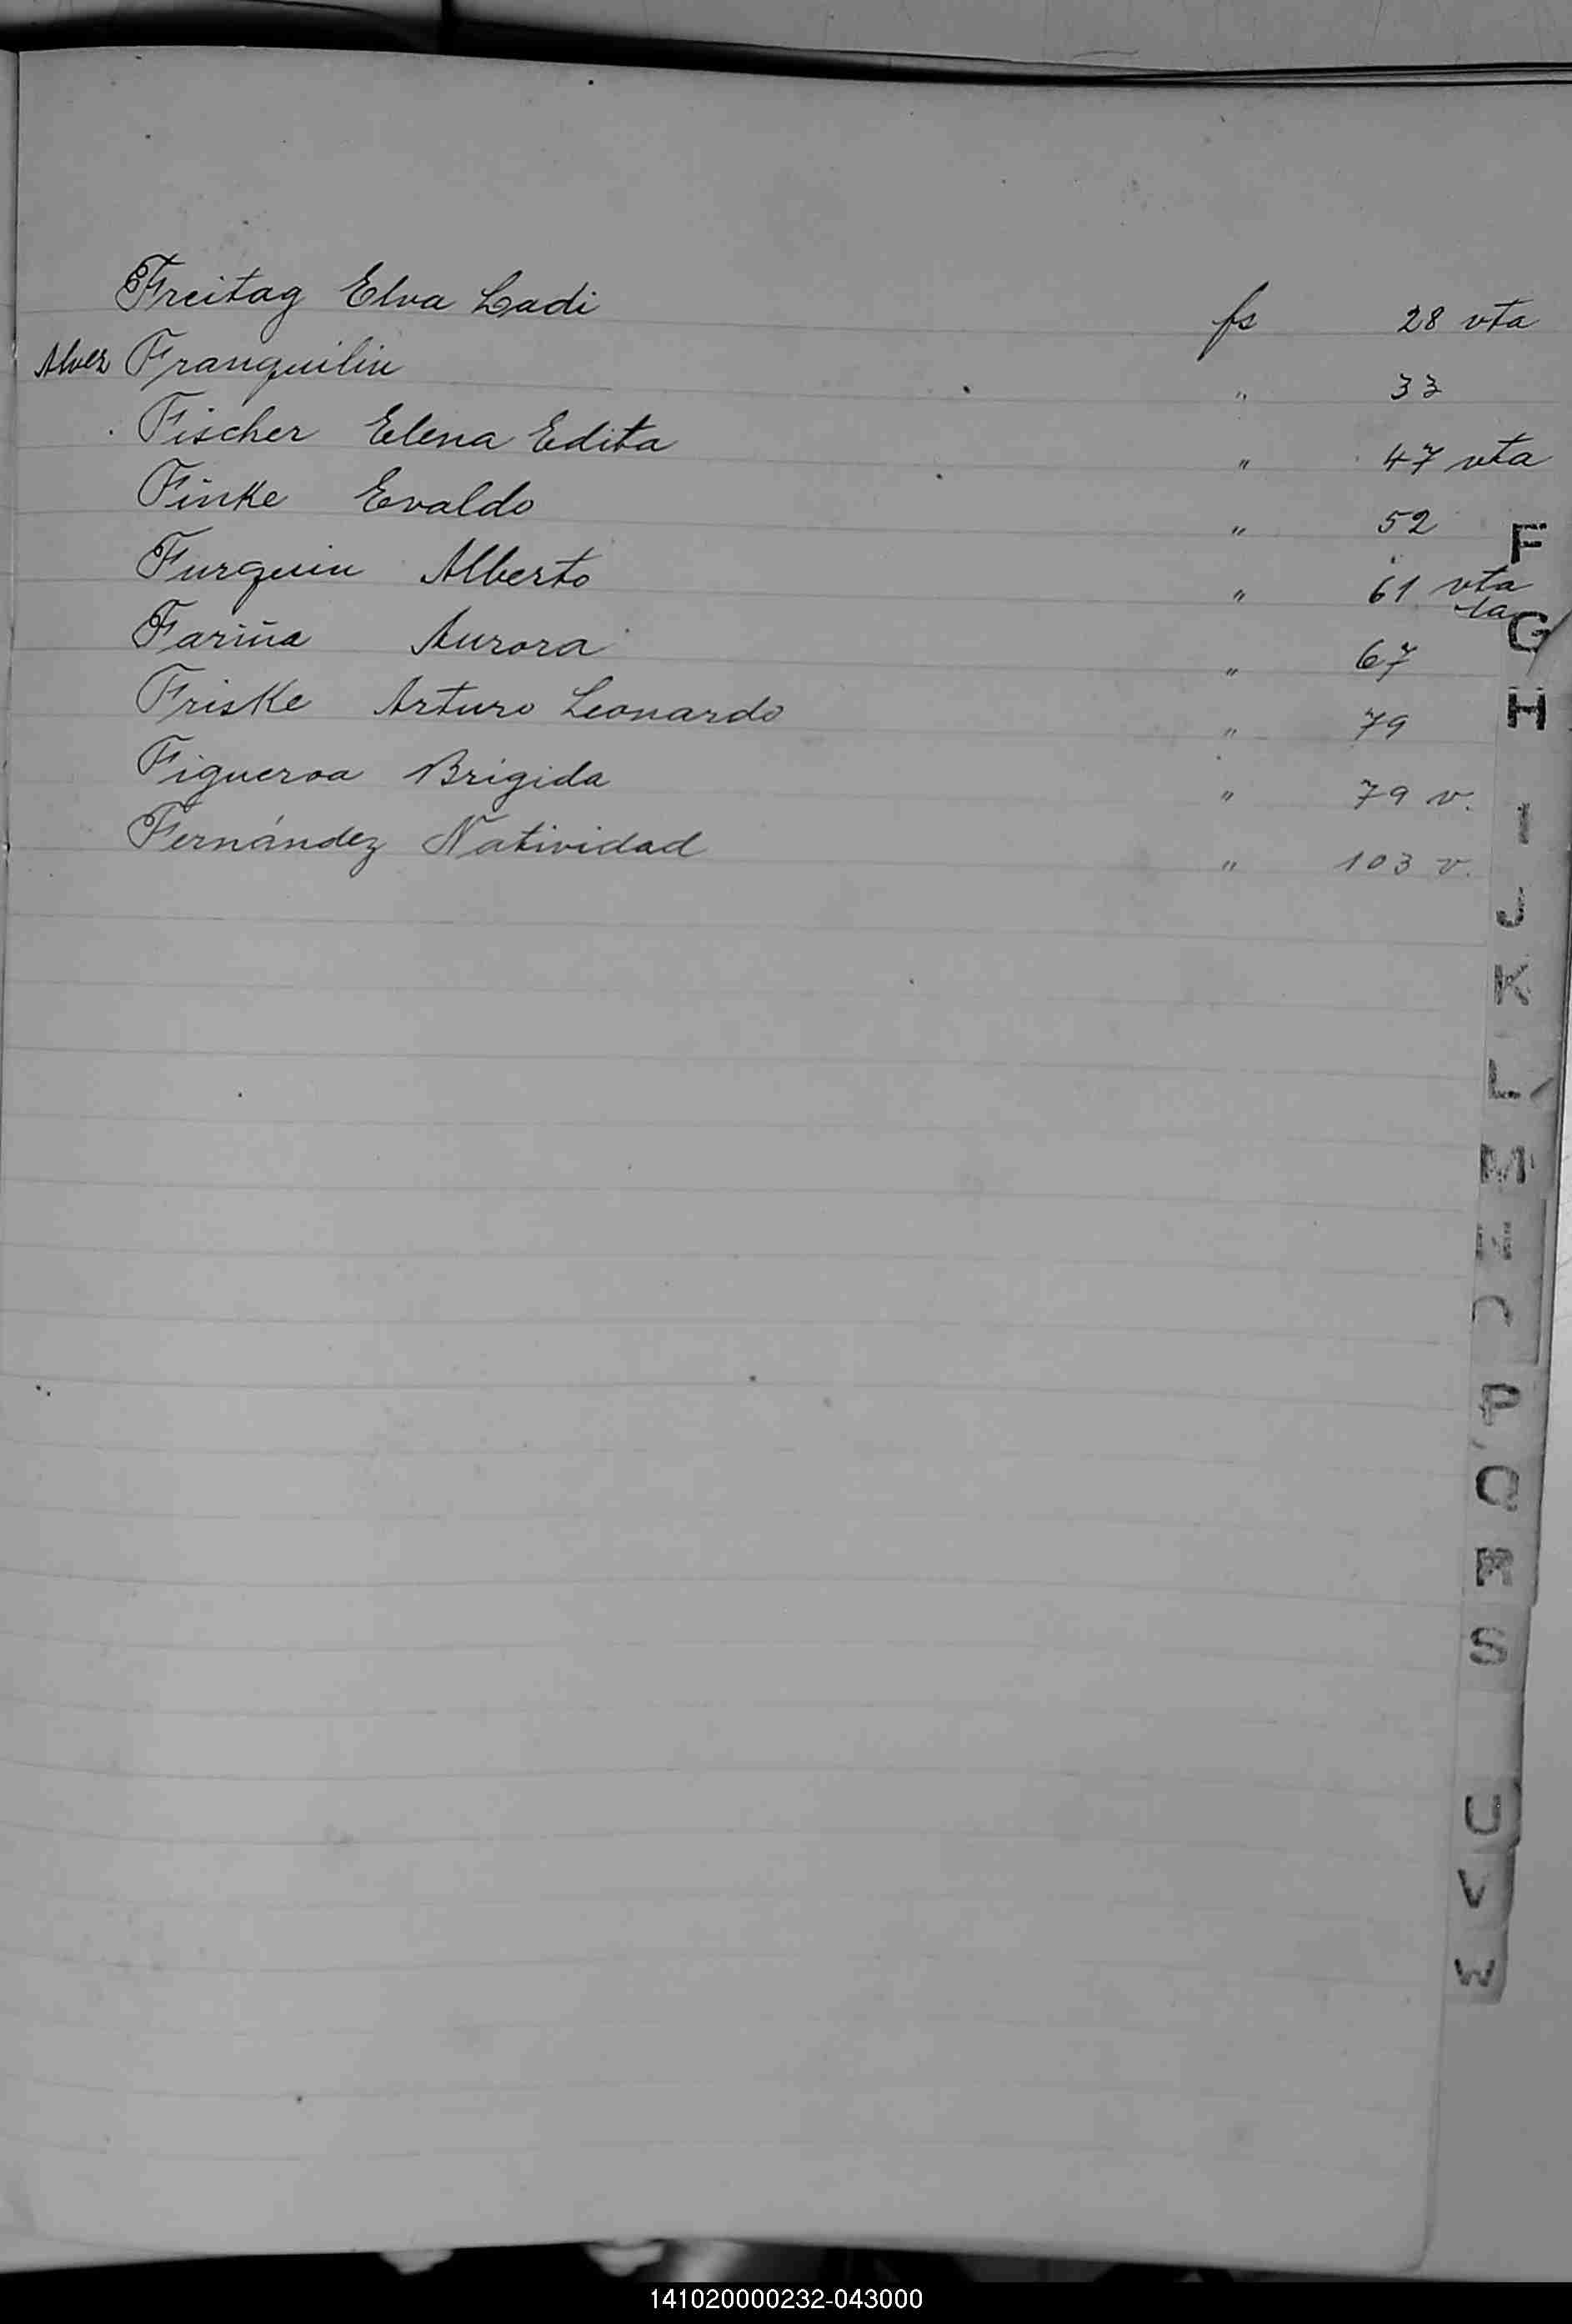 Freitag Elva Ladi fs 28 vta
Alvez Franquilin " 33
Fischer Elena Edita " 47 vta
Finke Evaldo " 52
Furquin Alberto " 61 vta
ta
Fariña Aurora " 67
Friske Arturo Leonardo " 79
Figueroa Brigida " 79 v.
Fernández Natividad " 103 v.
F
G
H
I
J
K
L
M
N
O
P
Q
R
S
U
V
W
141020000232-043000